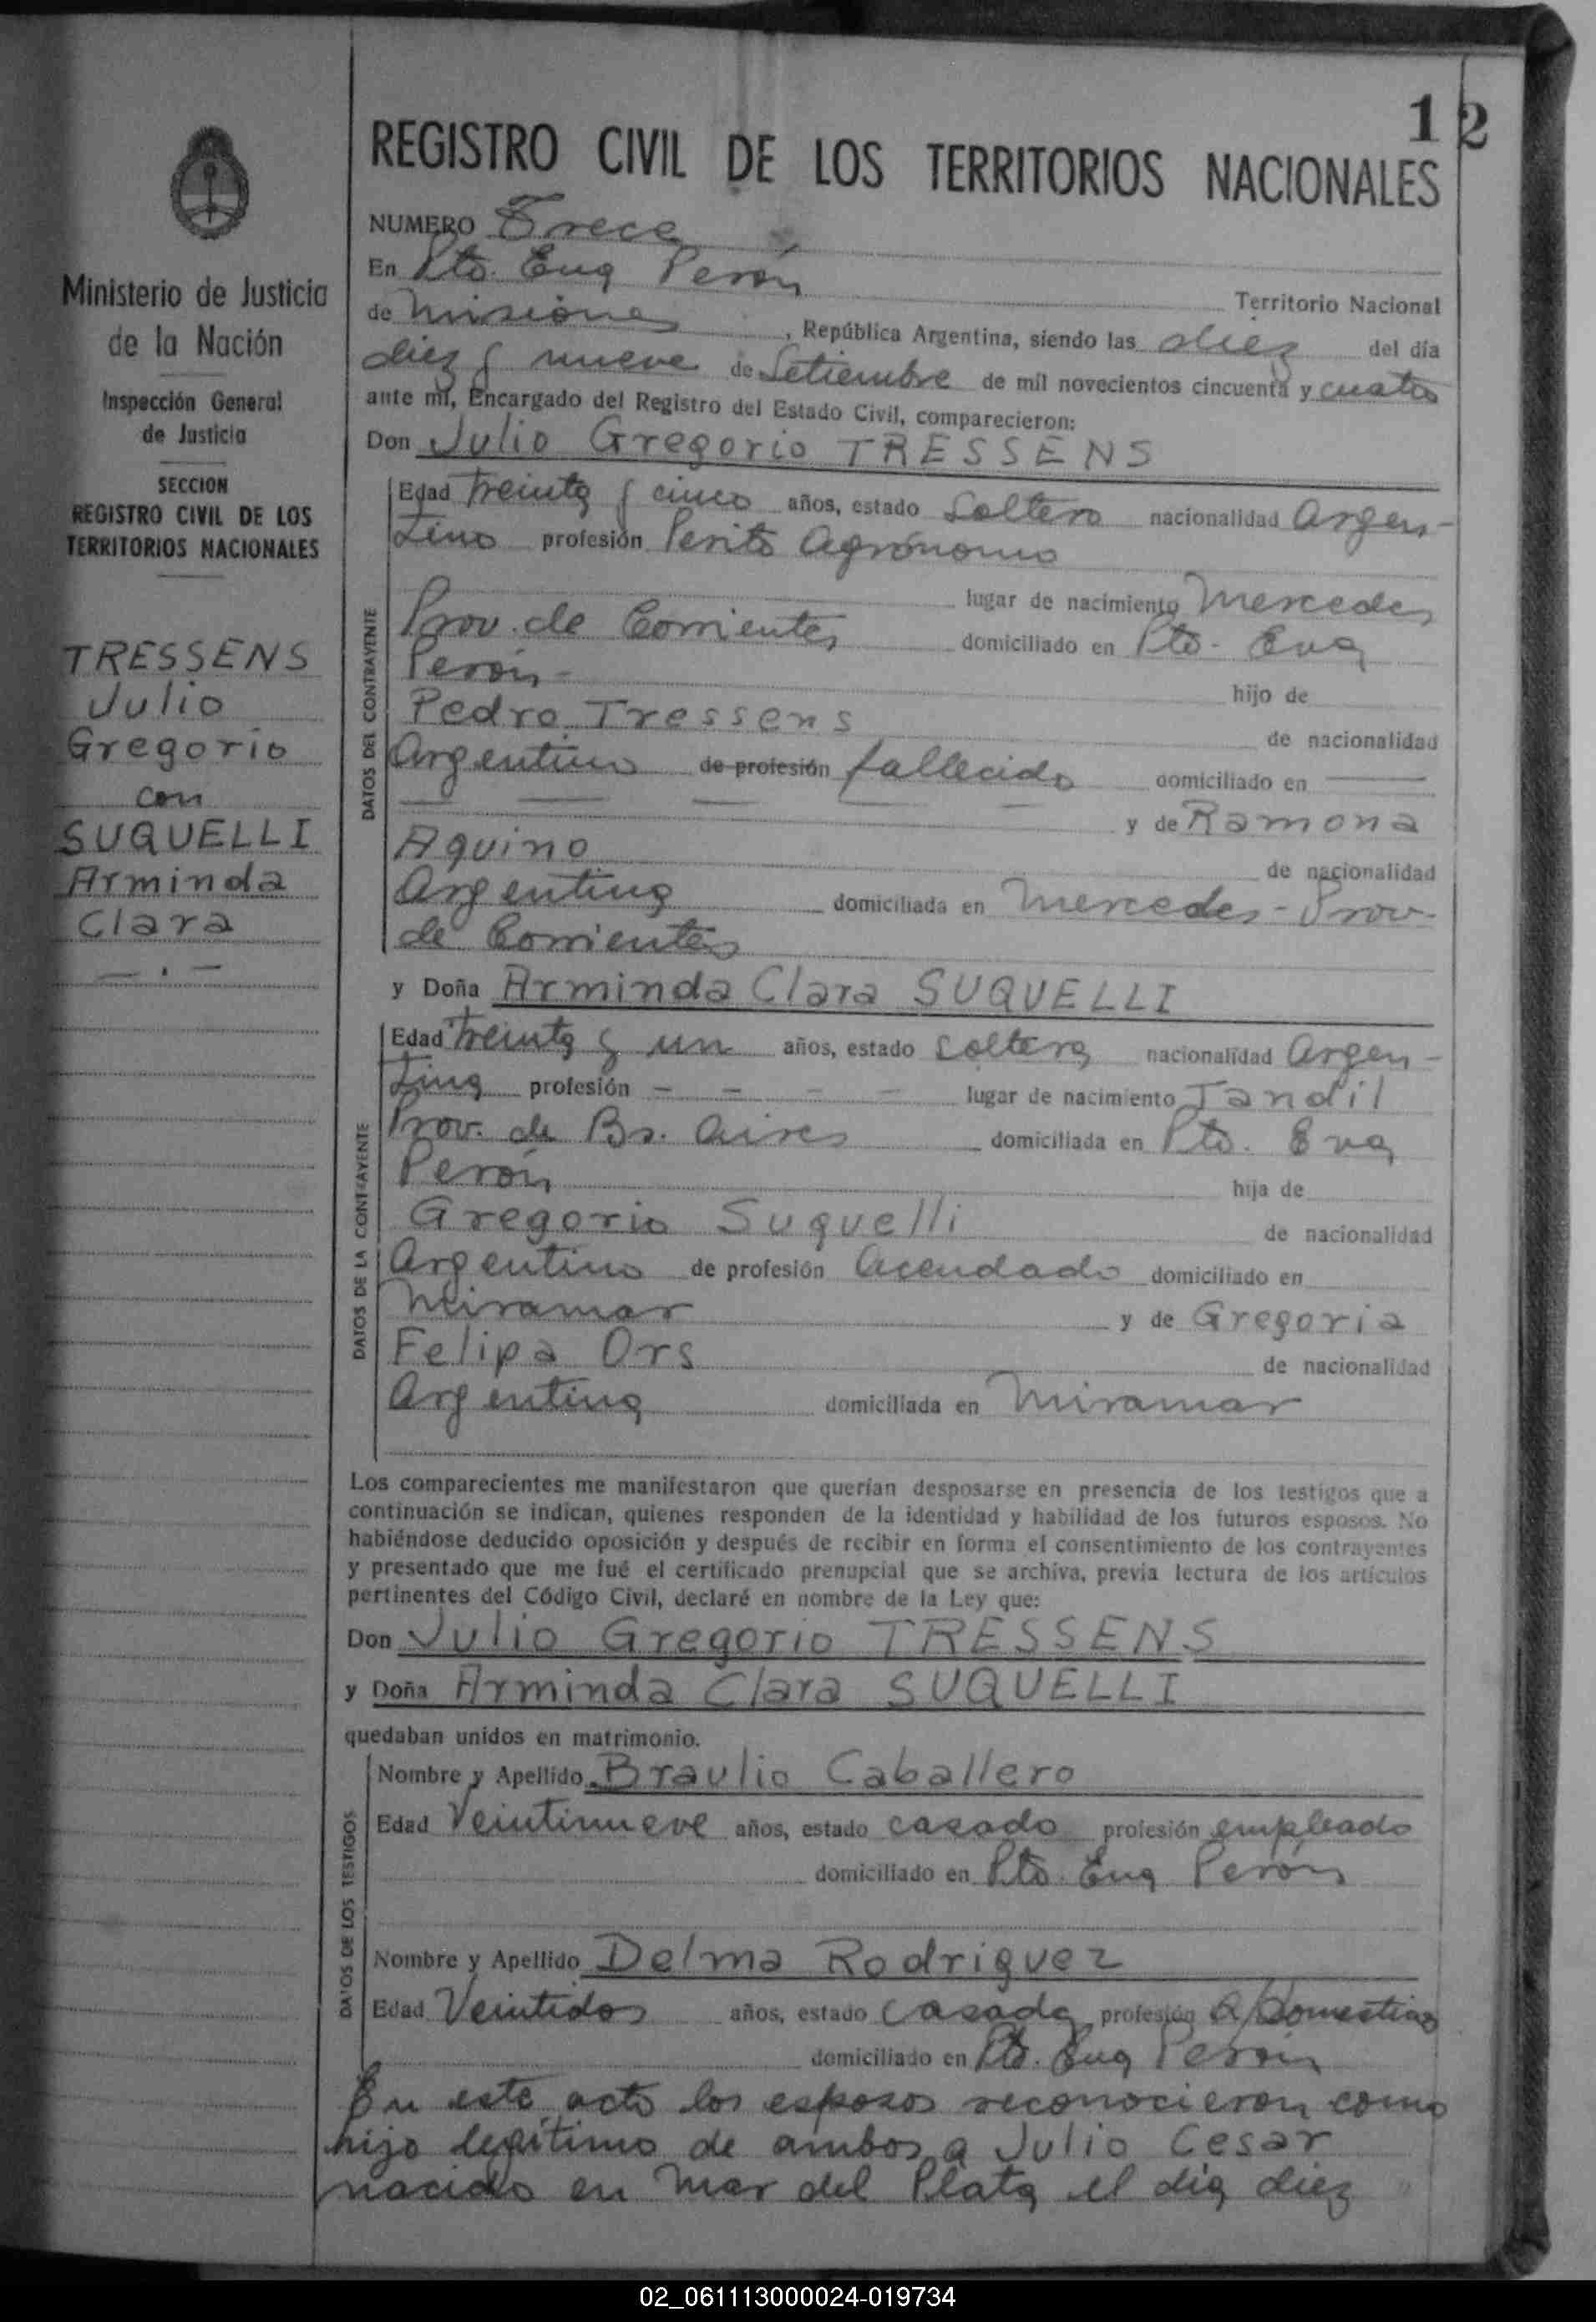 12
REGISTRO CIVIL DE LOS TERRITORIOS NACIONALES
Ministerio de Justicia
de la Nación
Inspección General
de Justicia
SECCION
REGISTRO CIVIL DE LOS
TERRITORIOS NACIONALES
TRESSENS
Julio
Gregorio
con
SUQUELLI
Arminda
Clara
NUMERO Trece
En Pto. Eva Perón Territorio Nacional
de Misiones, República Argentina, siendo las diez del día
diez y nueve de Setiembre de mil novecientos cincuenta y cuatro
ante mí, Encargado del Registro del Estado Civil, comparecieron:
Don Julio Gregorio TRESSENS
DATOS DEL CONTRAYENTE
Edad treinta y cinco años, estado Soltero nacionalidad Argen-
tino profesión Perito Agrónomo
lugar de nacimiento Mercedes
Prov. de Corrientes domiciliado en Pto. Eva
Perón- hijo de
Pedro Tressens de nacionalidad
Argentino de profesión fallecido domiciliado en
y de Ramona
Aquino de nacionalidad
Argentina domiciliada en Mercedes - Prov.
de Corrientes
y Doña Arminda Clara SUQUELLI
DATOS DE LA CONTRAYENTE
Edad treinta y un años, estado soltera nacionalidad Argen-
tina profesión - - - - lugar de nacimiento Tandil
Prov. de Bs. Aires domiciliada en Pto. Eva
Perón hija de
Gregorio Suquelli de nacionalidad
Argentino de profesión Acendado domiciliado en
Miramar y de Gregoria
Felipa Ors de nacionalidad
Argentina domiciliada en Miramar
Los comparecientes me manifestaron que querían desposarse en presencia de los testigos que a
continuación se indican, quienes responden de la identidad y habilidad de los futuros esposos. No
habiéndose deducido oposición y después de recibir en forma el consentimiento de los contrayentes
y presentado que me fué el certificado prenupcial que se archiva, previa lectura de los artículos
pertinentes del Código Civil, declaré en nombre de la Ley que:
Don Julio Gregorio TRESSENS
y Doña Arminda Clara SUQUELLI
quedaban unidos en matrimonio.
DATOS DE LOS TESTIGOS
Nombre y Apellido Braulio Caballero
Edad Veintinueve años, estado casado profesión empleado
domiciliado en Pto. Eva Perón
Nombre y Apellido Delma Rodriguez
Edad Veintidos años, estado casada profesión Q/Domesticos
domiciliado en Pto. Eva Perón
En este acto los esposos reconocieron como
hijo legítimo de ambos a Julio Cesar
nacido en Mar del Plata el día diez
02_061113000024-019734